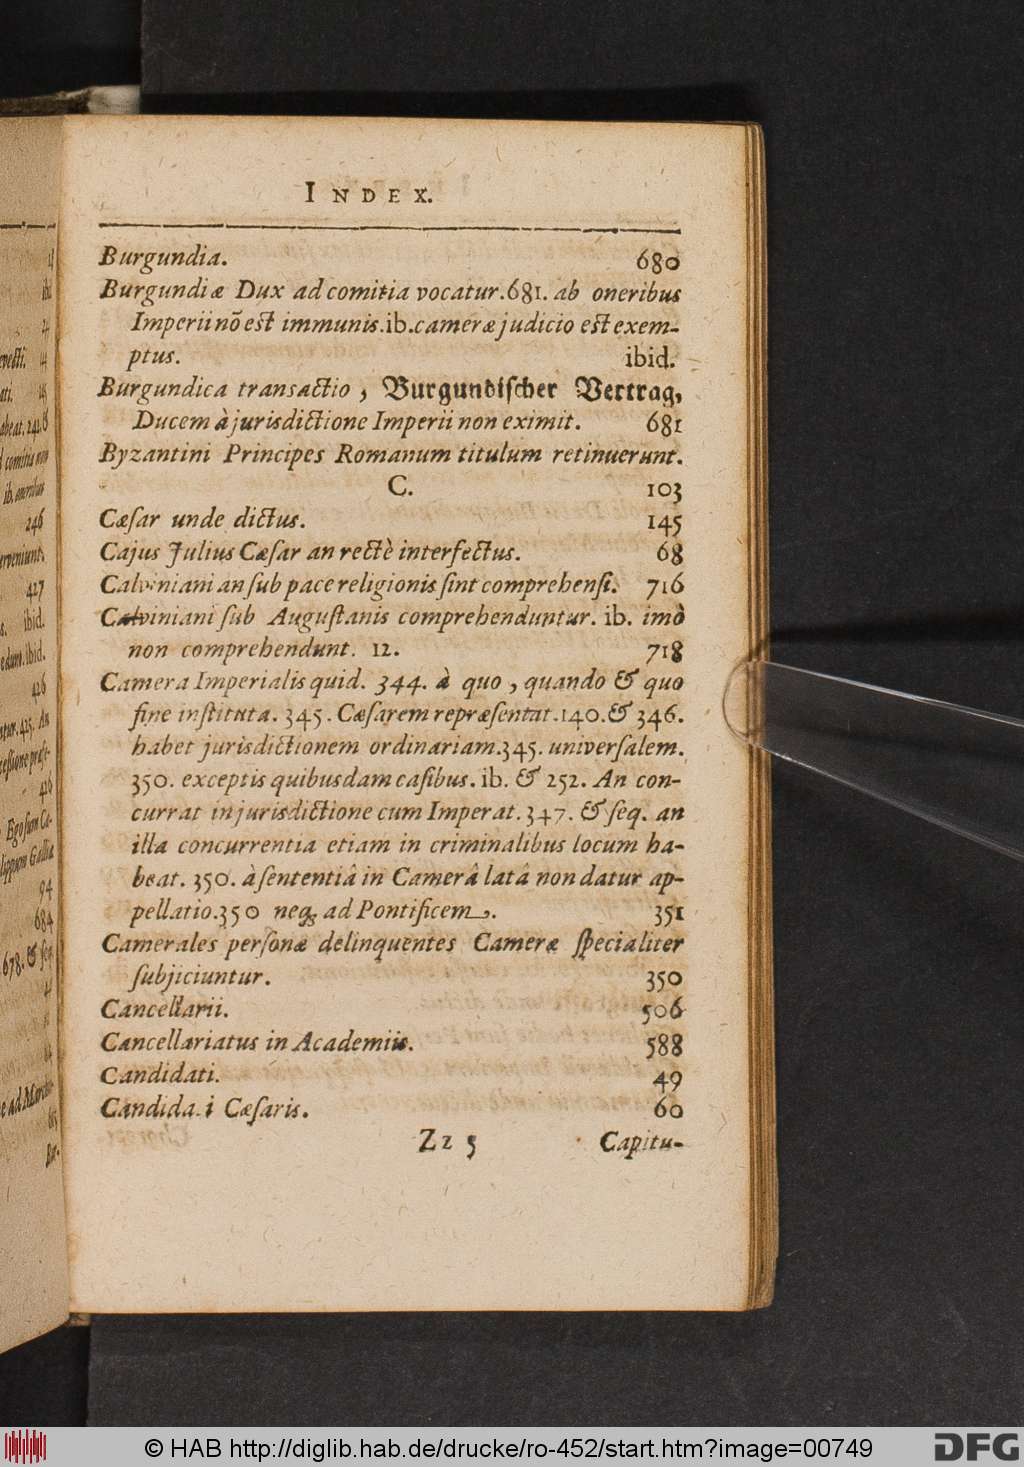 INDEX.
Burgundia. 680
Burgundiæ Dux ad comitia vocatur.681. ab oneribus
Imperii nõ est immunis.ib.cameræ judicio est exem-
ptus. ibid.
Burgundica transactio, Burgundischer Vertrag,
Ducem à jurisdictione Imperii non eximit. 681
Byzantini Principes Romanum titulum retinuerunt.
C. 103
Cæſar unde dictus. 145
Cajus Julius Cæſar an rectè interfectus. 68
Calviniani an ſub pace religionis ſint comprehenſi. 716
Calviniani ſub Auguſtanis comprehenduntur. ib. imò
non comprehendunt. 12. 718
Camera Imperialis quid. 344. à quo, quando & quo
fine inſtituta. 345. Cæſarem repræſentat.140.& 346.
habet jurisdictionem ordinariam.345. univerſalem.
350. exceptis quibusdam caſibus. ib. & 252. An con-
currat in jurisdictione cum Imperat. 347. & ſeq. an
illa concurrentia etiam in criminalibus locum ha-
beat. 350. à ſententiâ in Camerâ latâ non datur ap-
pellatio.350 neq; ad Pontificem. 351
Camerales perſonæ delinquentes Cameræ ſpecialiter
ſubjiciuntur. 350
Cancellarii. 506
Cancellariatus in Academiis. 588
Candidati. 49
Candida i Cæſaris. 60
Zz 5 Capitu-
© HAB http://diglib.hab.de/drucke/ro-452/start.htm?image=00749
DFG